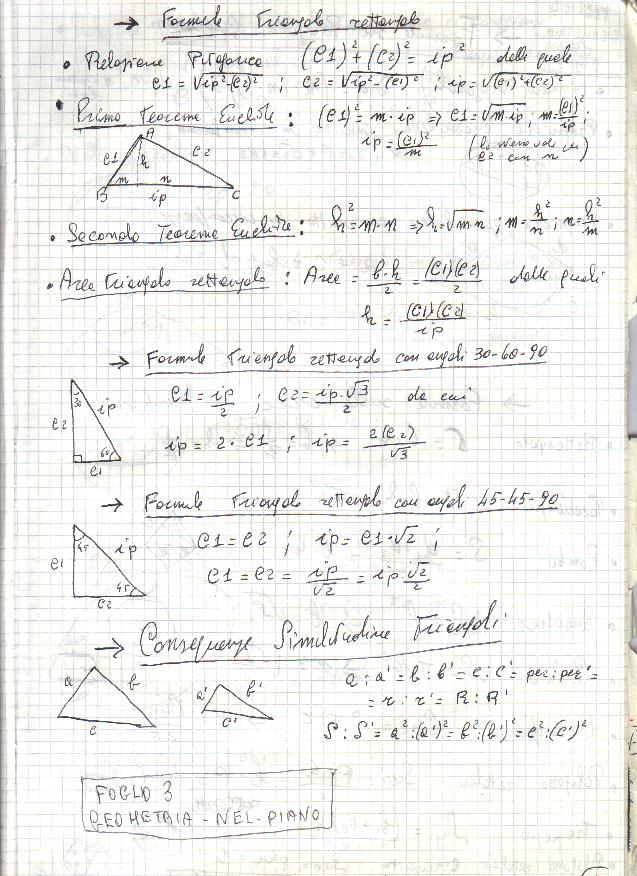 → Formule Triangolo rettangolo
• Relazione Pitagorica (C1)² + (C2)² = ip² dalle quale
C1 = √ip²-(C2)² ; C2 = √ip²-(C1)² ; ip = √(C1)²+(C2)²
• Primo Teorema Euclide : (C1)² = m · ip ⇒ C1 = √m·ip ; m = (C1)²/ip ;
ip = (C1)²/m (lo stesso vale per C2 con n)
A
C1 h C2
m n
B ip C
• Secondo Teorema Euclide : h² = m · n ⇒ h = √m·n ; m = h²/n ; n = h²/m
• Area Triangolo rettangolo : Area = b·h/2 = (C1)(C2)/2 dalle quali
h = (C1)(C2)/ip
→ Formule Triangolo rettangolo con angoli 30-60-90
C1 = ip/2 ; C2 = ip·√3/2 da cui
ip = 2 · C1 ; ip = 2(C2)/√3
30
C2 ip
60
C1
→ Formule Triangolo rettangolo con angoli 45-45-90
C1 = C2 ; ip = C1·√2 ;
C1 = C2 = ip/√2 = ip·√2/2
45
C1 ip
45
C2
→ Conseguenze Similitudine Triangoli
a b
c
a' b'
c'
a : a' = b : b' = c : c' = per : per' =
= r : r' = R : R'
S : S' = a² : (a')² = b² : (b')² = c² : (c')²
FOGLIO 3
GEOMETRIA - NEL - PIANO